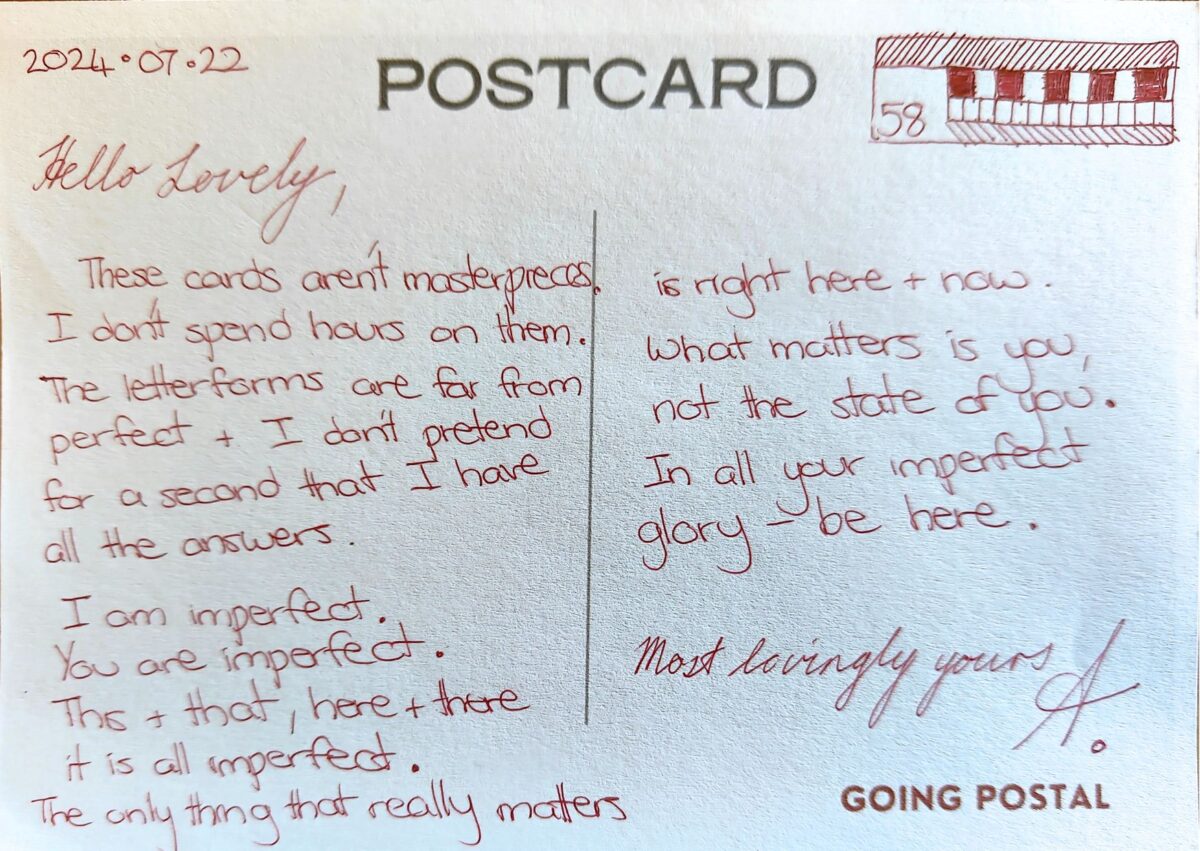 2024.07.22
POSTCARD
58
Hello Lovely,
These cards aren't masterpieces.
I don't spend hours on them.
The letterforms are far from
perfect + I don't pretend
for a second that I have
all the answers.
I am imperfect.
You are imperfect.
This + that, here + there
it is all imperfect.
The only thing that really matters
is right here + now.
What matters is you,
not the state of you.
In all your imperfect
glory – be here.
Most lovingly yours
A.
GOING POSTAL